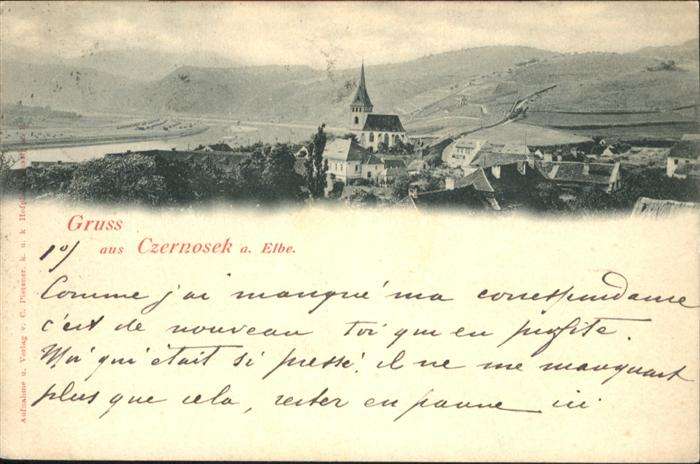 Gruss
aus Czernosek a. Elbe.
10)
Comme j'ai manqué ma correspondance
c'est de nouveau toi qui en profite.
Moi qui était si pressé, il ne me manquait
plus que cela, rester en panne ici
Aufnahme u. Verlag v. C. Pietzner, k. u. k. Hofph